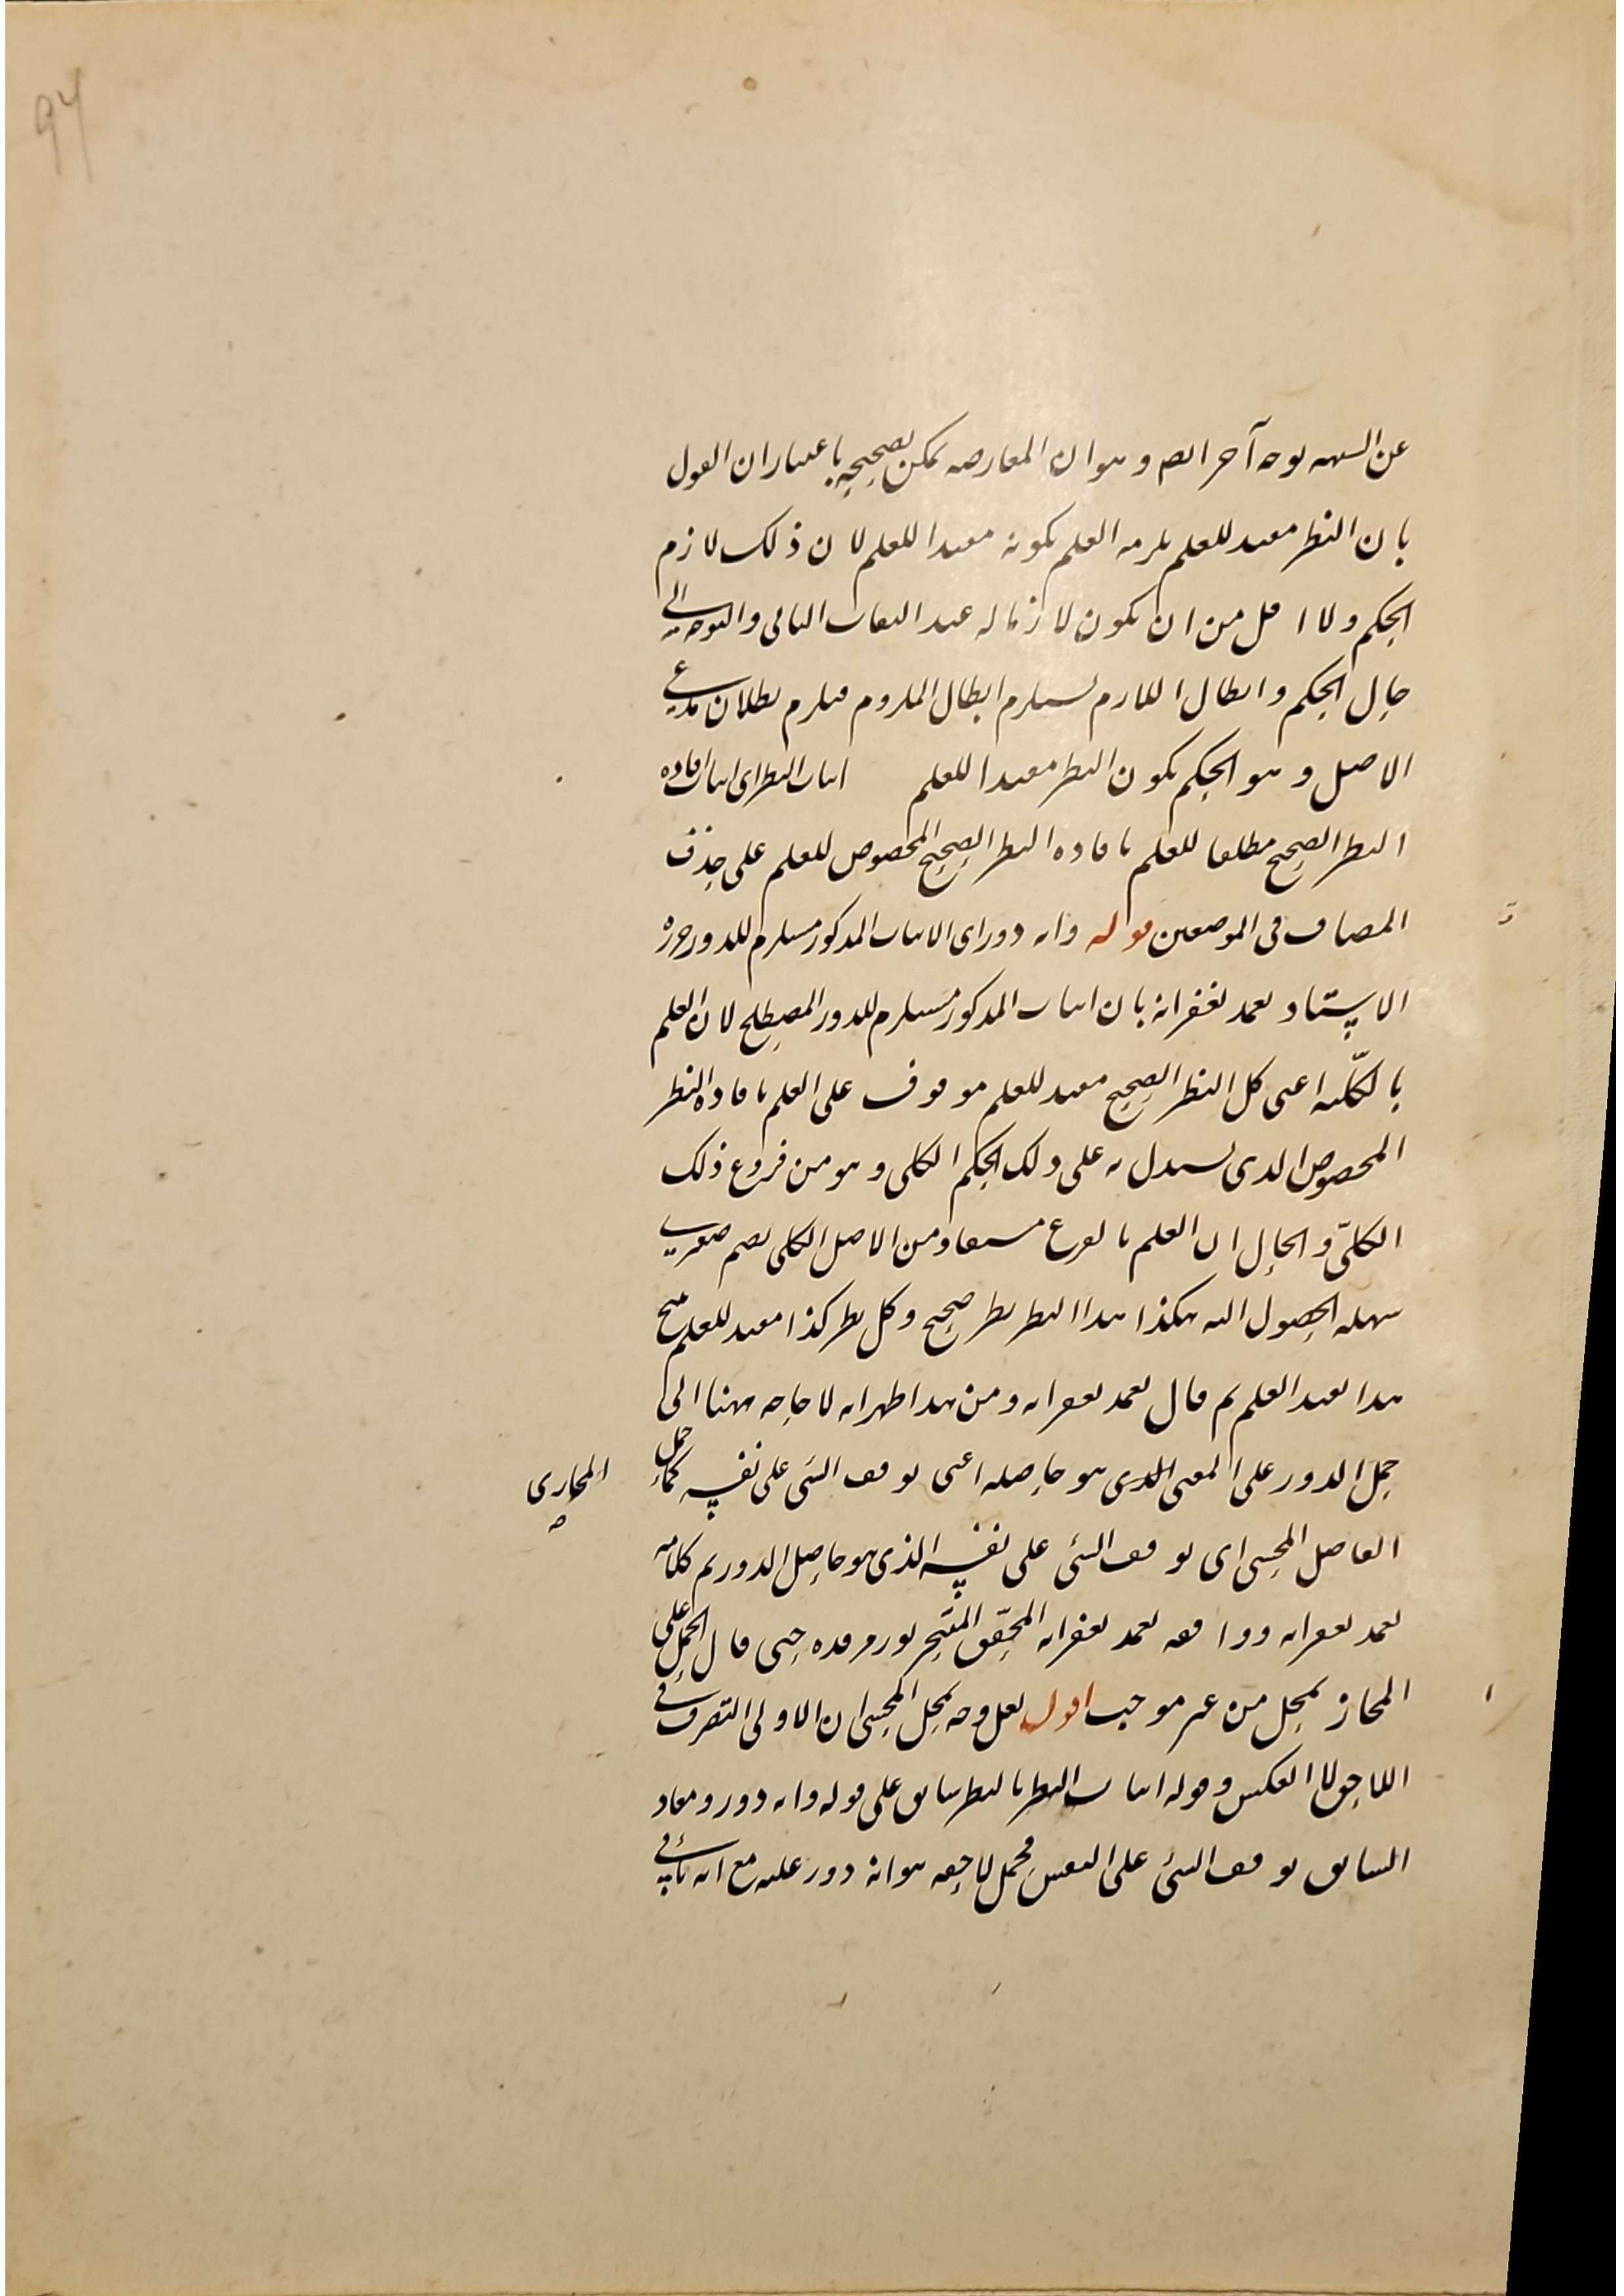 عن الشبهة بوجه آخر ايضا وهو ان المعارضة يمكن تصحيحها باعتبار ان القول
بان النظر مفيد للعلم يلزمه العلم بكونه مفيدا للعلم لان ذلك لازم
الحكم ولا اقل من ان يكون لازما له عند التفات التالى والتوجه الى
حال الحكم وابطال اللازم يستلزم ابطال الملزوم فيلزم بطلان مدعى
الاصل وهو الحكم بكون النظر مفيدا للعلم اثبات النظر اى اثبات افادة
النظر الصحيح مطلقا للعلم بافادة النظر الصحيح المخصوص للعلم على حذف
المضاف فى الموضعين قوله وانه دور اى الاثبات المذكور مستلزم للدور حرره
الاستاد تغمد بغفرانه بان اثبات المذكور مستلزم للدور المصطلح لان العلم
بالكلّية اعنى كل النظر الصحيح مفيد للعلم موقوف على العلم بافادة النظر
المخصوص الذى يستدل به على ذلك الحكم الكلى وهو من فروع ذلك
الكلىّ والحال ان العلم بالفرع مستفاد من الاصل الكلى بضم صغرى
سهلة الحصول اليه هكذا هذا النظر نظر صحيح وكل نظر كذا مفيد للعلم ينتج
هذا يفيد العلم ثم قال تغمد بغفرانه ومن هذا ظهر انه لا حاجة ههنا الى
حمل الدور على المعنى الذى هو حاصله اعنى توقف الشئ على نفسه كما حمل
المجازى
صح
الفاضل المحشى اى توقف الشئ على نفسه الذى هو حاصل الدور تم كلامه
تغمد بغفرانه ووافقه تغمد بغفرانه المحقّق المتبحر نور مرقده حتى قال الحمل على
المجاز تمحل من غير موجب اقول لعل وجه تمحل المحشى ان الاولى التصرف فى
اللاحق لا العكس وقوله اثبات النظر بالنظر سابق على قوله وانه دور ومفاد
السابق توقف الشئ على النفس فحمل لاحقه هو انه دور عليه مع انه تأسى فى